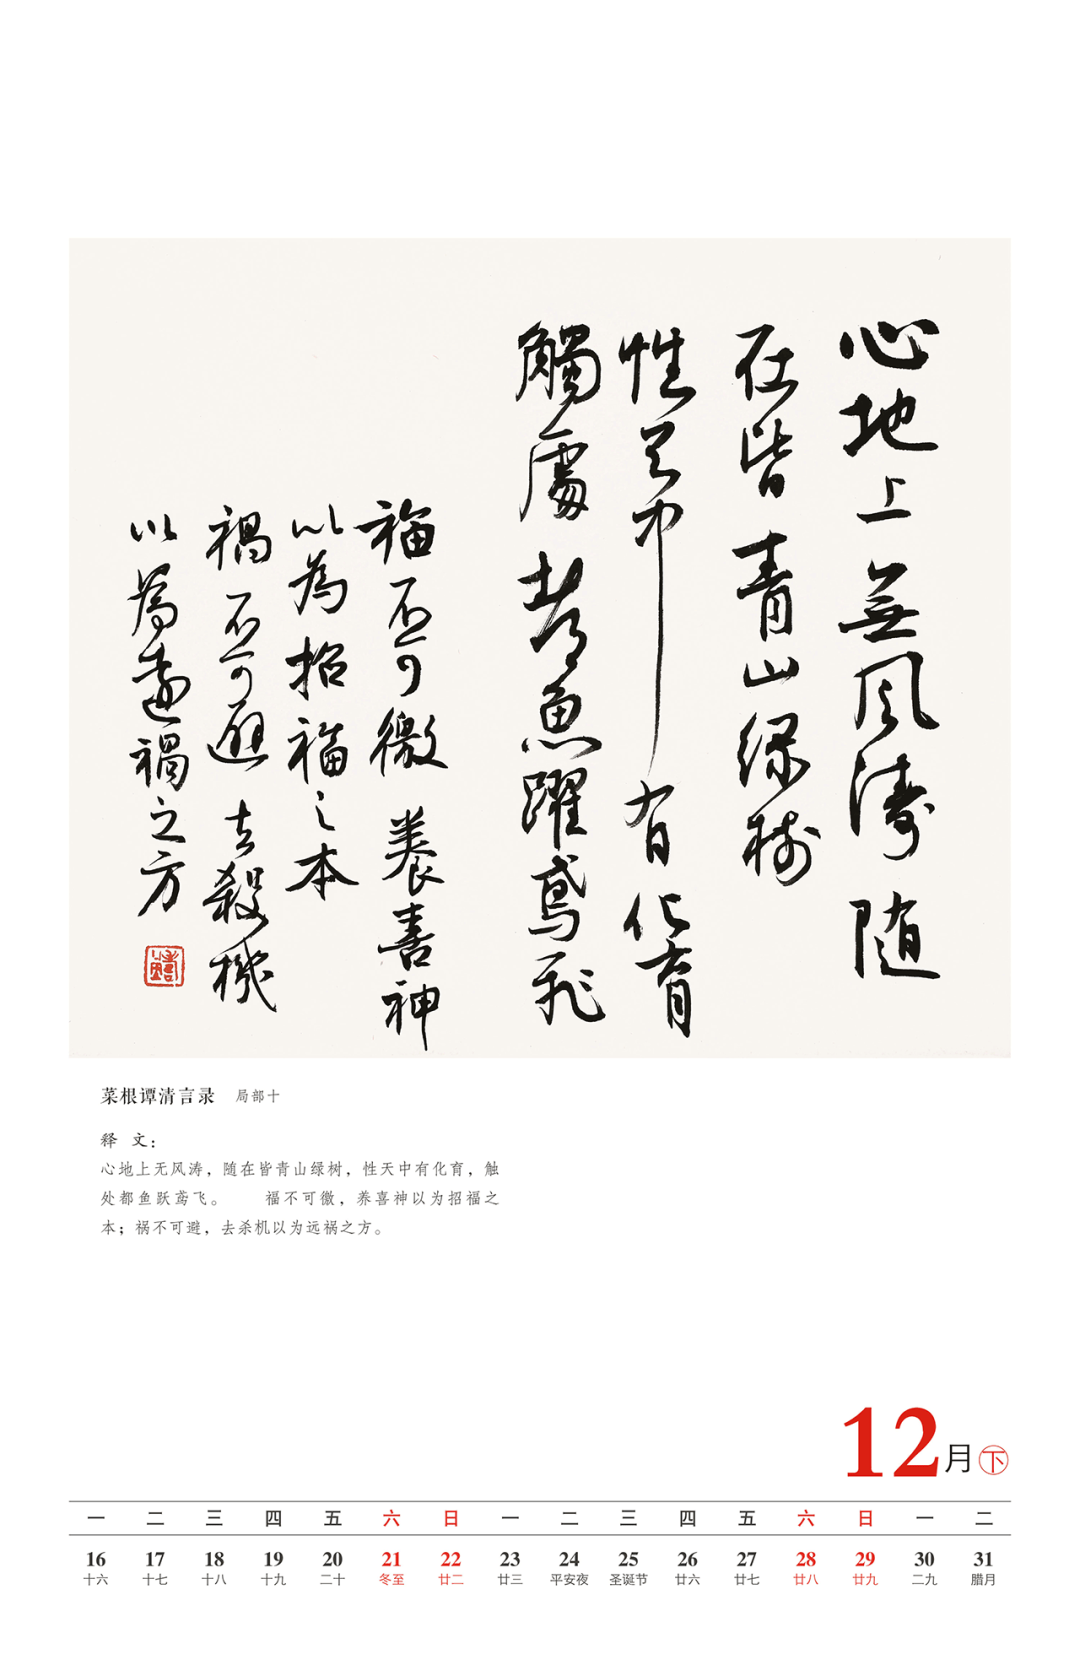 心地上無風濤随
在皆青山绿樹
性天中有化育
觸處都魚躍鳶飛
福不可徼養喜神
以為招福之本
禍不可避去殺機
以為遠禍之方
菜根谭清言录 局部十
释 文：
心地上无风涛，随在皆青山绿树，性天中有化育，触
处都鱼跃鸢飞。 福不可徼，养喜神以为招福之
本；祸不可避，去杀机以为远祸之方。
12月下
一 二 三 四 五 六 日 一 二 三 四 五 六 日 一 二
16 17 18 19 20 21 22 23 24 25 26 27 28 29 30 31
十六 十七 十八 十九 二十 冬至 廿二 廿三 平安夜 圣诞节 廿六 廿七 廿八 廿九 二九 腊月